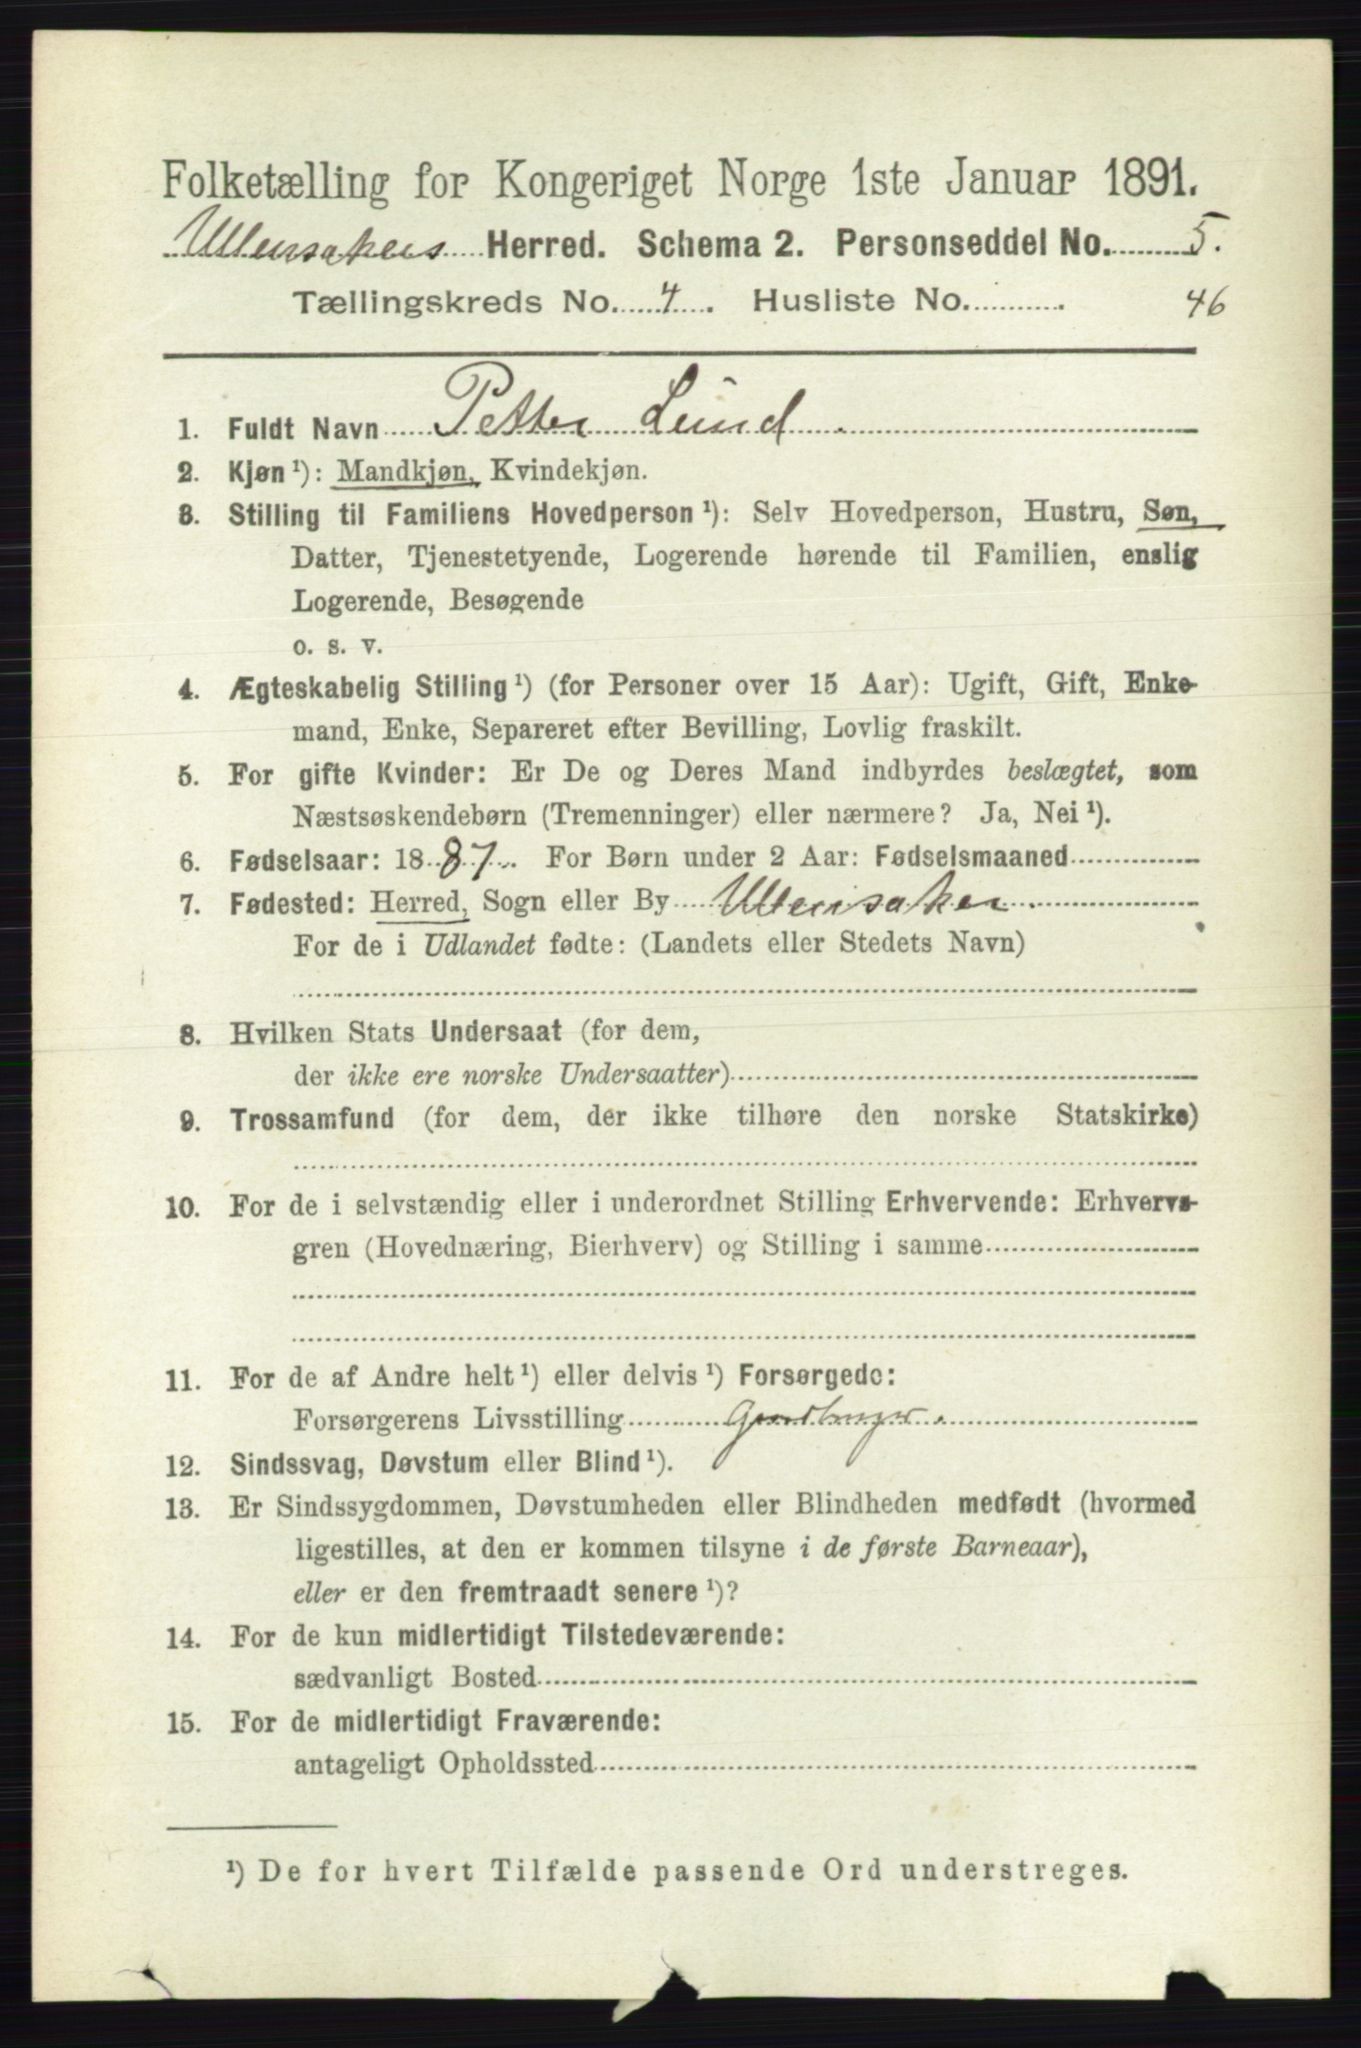 Folketælling for Kongeriget Norge 1ste Januar 1891.
Ullensakers Herred. Schema 2. Personseddel No. 5.
Tællingskreds No. 4. Husliste No. 46
1. Fuldt Navn Petter Lund.
2. Kjøn ¹): Mandkjøn, Kvindekjøn.
3. Stilling til Familiens Hovedperson ¹): Selv Hovedperson, Hustru, Søn,
Datter, Tjenestetyende, Logerende hørende til Familien, enslig
Logerende, Besøgende
o. s. v.
4. Ægteskabelig Stilling ¹) (for Personer over 15 Aar): Ugift, Gift, Enke-
mand, Enke, Separeret efter Bevilling, Lovlig fraskilt.
5. For gifte Kvinder: Er De og Deres Mand indbyrdes beslægtet, som
Næstsøskendebørn (Tremenninger) eller nærmere? Ja, Nei ¹).
6. Fødselsaar: 1887. For Børn under 2 Aar: Fødselsmaaned
7. Fødested: Herred, Sogn eller By Ullensaker.
For de i Udlandet fødte: (Landets eller Stedets Navn)
8. Hvilken Stats Undersaat (for dem,
der ikke ere norske Undersaatter)
9. Trossamfund (for dem, der ikke tilhøre den norske Statskirke)
10. For de i selvstændig eller i underordnet Stilling Erhvervende: Erhvervs-
gren (Hovednæring, Bierhverv) og Stilling i samme
11. For de af Andre helt ¹) eller delvis ¹) Forsørgede:
Forsørgerens Livsstilling Gaardbruger.
12. Sindssvag, Døvstum eller Blind ¹).
13. Er Sindssygdommen, Døvstumheden eller Blindheden medfødt (hvormed
ligestilles, at den er kommen tilsyne i de første Barneaar),
eller er den fremtraadt senere ¹)?
14. For de kun midlertidigt Tilstedeværende:
sædvanligt Bosted
15. For de midlertidigt Fraværende:
antageligt Opholdssted
¹) De for hvert Tilfælde passende Ord understreges.